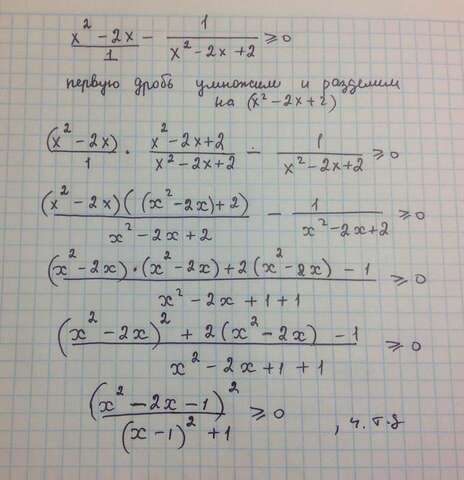 (x² - 2x)/1 - 1/(x² - 2x + 2) ⩾ 0
первую дробь умножим и разделим
на (x² - 2x + 2)
(x² - 2x)/1 · (x² - 2x + 2)/(x² - 2x + 2) - 1/(x² - 2x + 2) ⩾ 0
(x² - 2x)((x² - 2x) + 2)/(x² - 2x + 2) - 1/(x² - 2x + 2) ⩾ 0
((x² - 2x)·(x² - 2x) + 2(x² - 2x) - 1)/(x² - 2x + 1 + 1) ⩾ 0
((x² - 2x)² + 2(x² - 2x) - 1)/(x² - 2x + 1 + 1) ⩾ 0
(x² - 2x - 1)²/((x - 1)² + 1) ⩾ 0 , ч.т.д